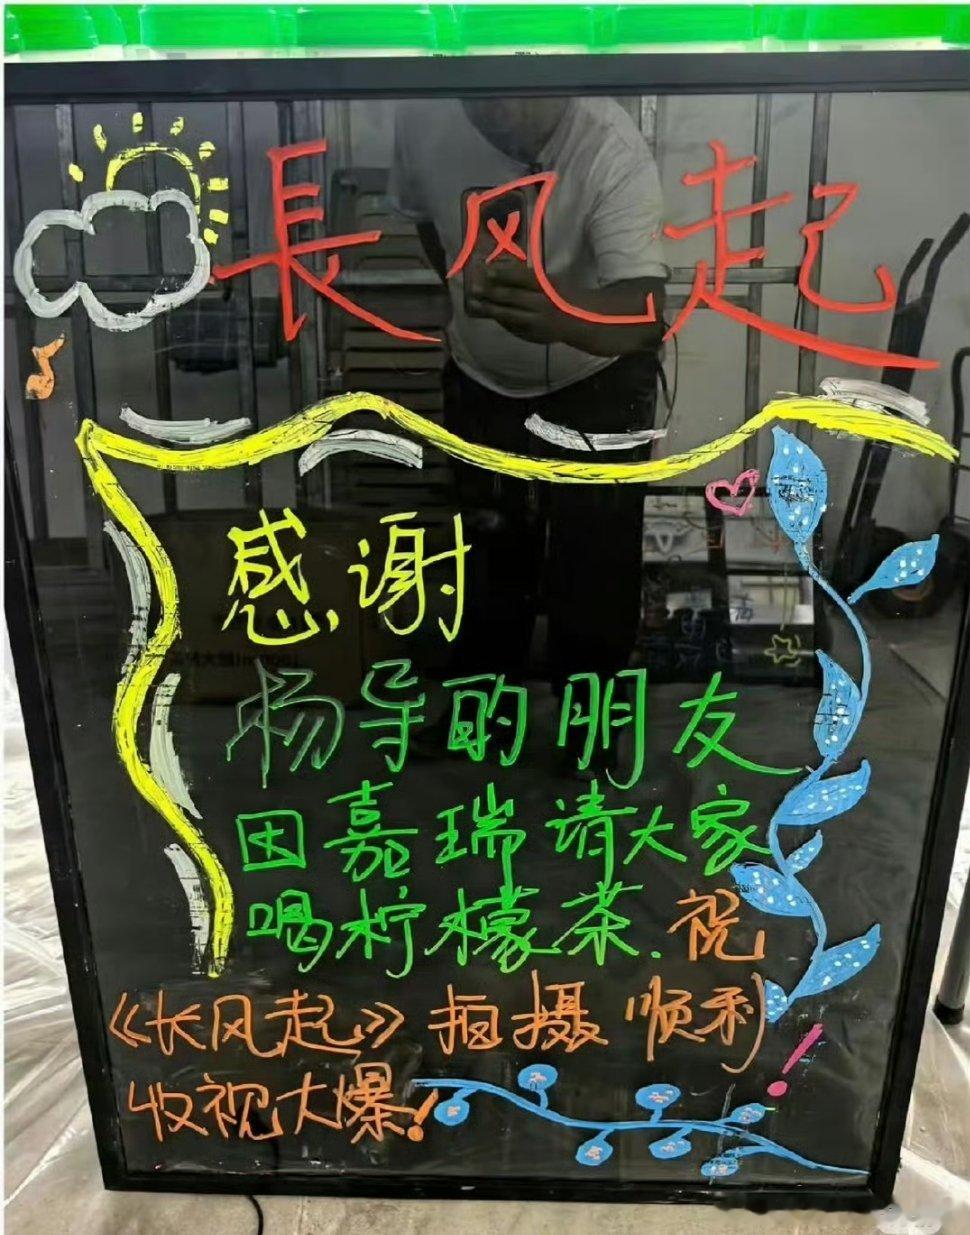 長风起
感谢
杨导的朋友
因嘉瑞请大家
喝柠檬茶.祝
《长风起》拍摄顺利
收视大爆!!